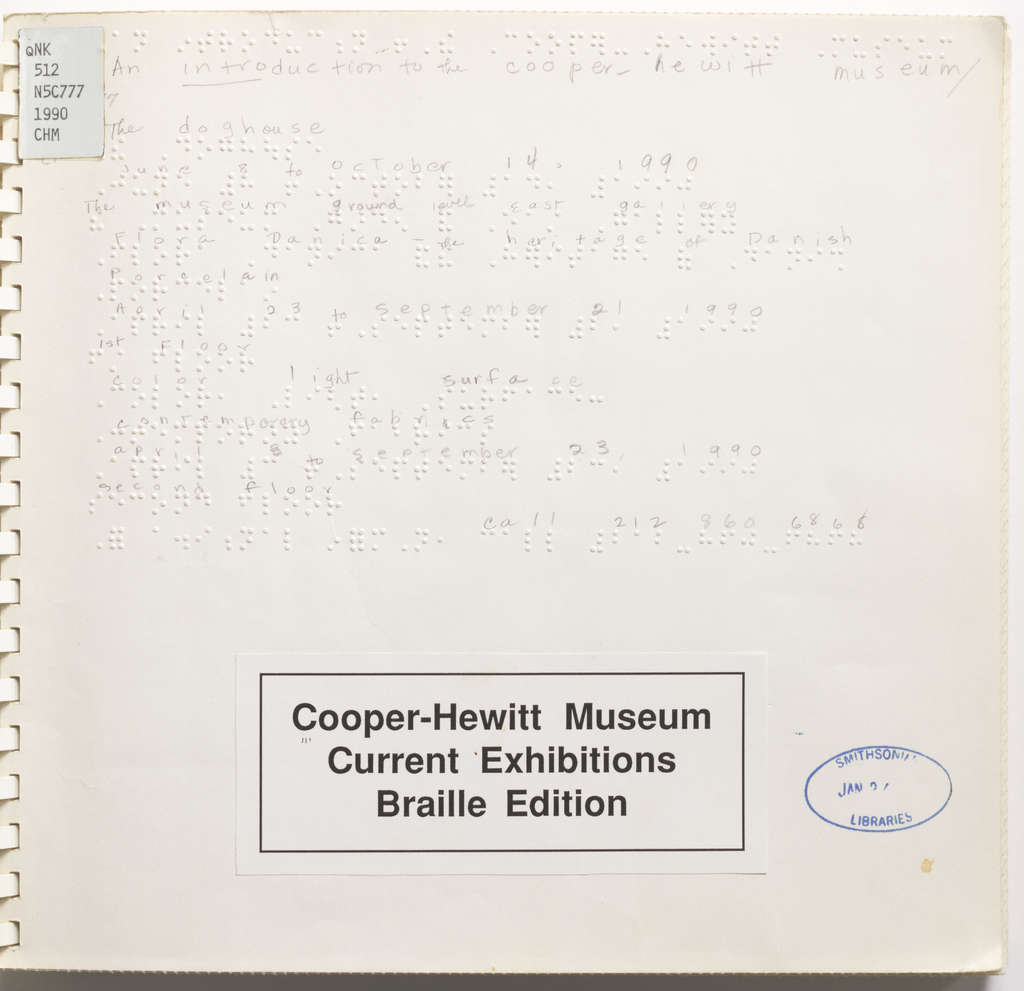 QNK
512
N5C777
1990
CHM
An introduction to the cooper-hewitt museum/
The doghouse
June 8 to october 14. 1990
The museum ground level east gallery
Flora Danica - the heritage of Danish
Porcelain
April 23 to september 21 1990
1st Floor
color light surface
contemporery fabrics
april 3 to september 23, 1990
second floor
call 212 860 6868
Cooper-Hewitt Museum
Current Exhibitions
Braille Edition
JAN
LIBRARIES